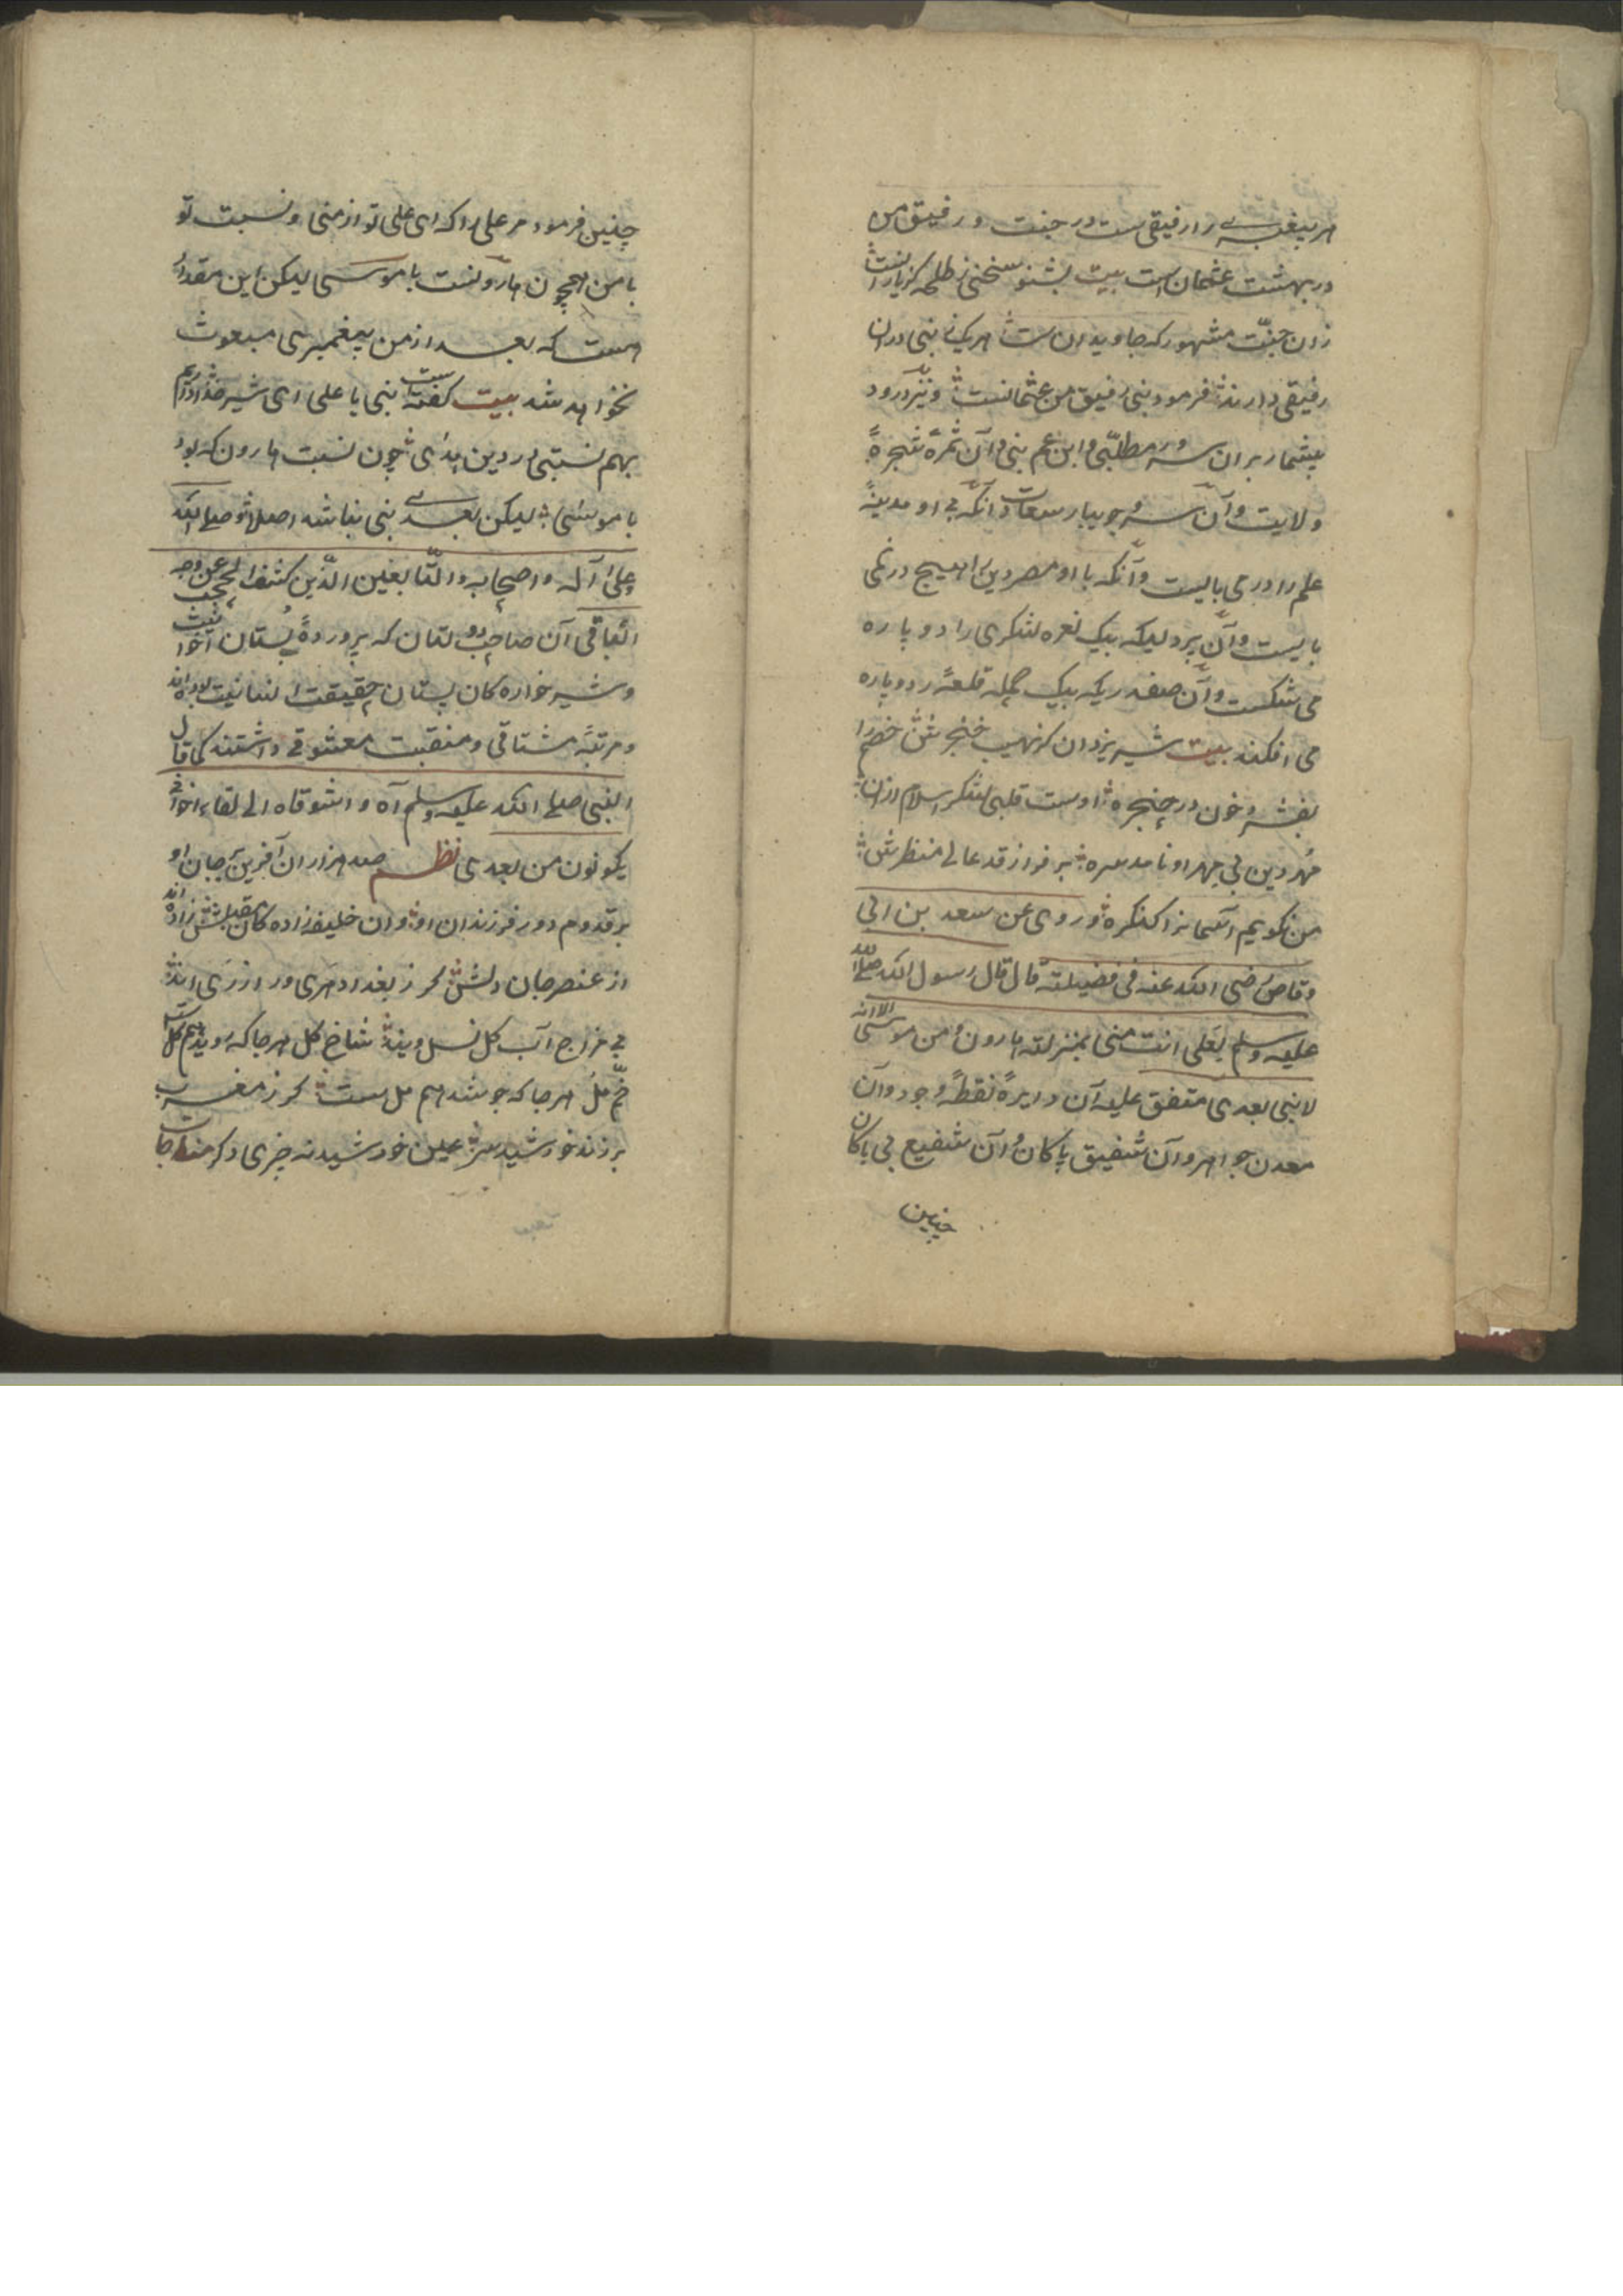 هر پیغمبرے را رفیقی ست در جنت و رفیق من
در بهشت عثمان است بیت بشنو سخنی ز طلحه کز یارانست
زان جنّت مشهور که جاویدان ست هر یک نبی دران
رفیقی دارند فرمود نبی رفیق من عثمانست و نیز درود
بیشمار بران سرور مطلّبی و ابن عم نبی و آن ثمرهٔ شجرهٔ
ولایت و آن سرو جویبار سعادت آنکه بی او مدینهٔ
علم را در می بایست و آنکه با او مصر دین را هیچ در نمی
بایست و آن پردلیکه بیک نعره لشکری را دو پاره
می شکست و آن صفدریکه بیک حمله قلعهٔ
می افکند بیت شیر یزدان کز نهیب خنجرش خصم را
بفشرد خون در حنجره اوست قلب لشکر اسلام ازان
مُهر دین بی مهر او نامد سره بر فراز قد عالی منظرش
من نگویم آسمانرا کنگره و روی عن سعد بن ابی
وقاص رضی الله عنه فی فضیلته قال قال رسول الله صلی الله
علیه وسلم لعلی انت منی بمنزلته هارون من موسی الا انه
لا نبی بعدی متفق علیه آن دایرهٔ نقطهٔ وجود و آن
معدن جواهر و آن شفیق پاکان و آن شفیع بی باکان
چنین
چنین فرمود مر علی را که ای علی تو از منی و نسبت تو
با من همچون هارونست با موسی لیکن این مقدار
هست که بعد از من پیغمبری مبعوث
نخواهد شد بیت گفت نبی با علی ای شیر خدا
بهم نسبتی در دین هدای چون نسبت هارون که بود
با موسی لیکن بعد نبی نباشد اصلا و صلی الله
علی آله و اصحابه والتابعین الّذین کشفوا الحجب عن وجه
الباقی آن صاحب دولتان که پروردهٔ بُستان اخوت
و شیر خواره کان پستان حقیقت انسانیت بوده اند
و مرتبهٔ مشتاقی و منقبت معشوقی داشتند کما قال
النبی صلی الله علیه وسلم آه و اشوقاه الی لقاء اخوانی
یکونون من بعدی نظم صد هزاران آفرین بر جان او
بر قدوم دور فرزندان او وان خلیفه زاده کان مقبلش زاده اند
از عنصر جان و دلش گر ز بغداد و هری ور از ری اند
بی مزاج آب گل نسل ویند شاخ گل هر جا که روید هم گل است
خُمّ مُل هر جا که جوشد هم مل ست گر ز مغرب
بر زند خورشید سر عین خورشید نه چیزی دگر مناجات